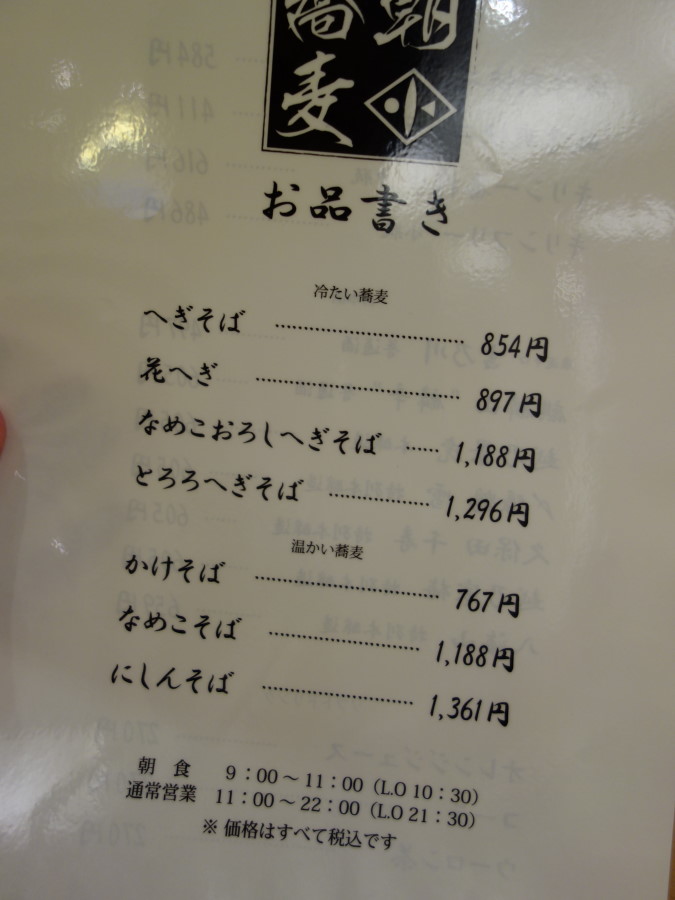 朝
蕎
麦
小
お品書き
冷たい蕎麦
へぎそば ………………………… 854円
花へぎ ………………………… 897円
なめこおろしへぎそば …… 1,188円
とろろへぎそば ……………… 1,296円
温かい蕎麦
かけそば ………………………… 767円
なめこそば …………………… 1,188円
にしんそば …………………… 1,361円
朝 食 9:00〜11:00(L.O 10:30)
通常営業 11:00〜22:00(L.O 21:30)
※ 価格はすべて税込です